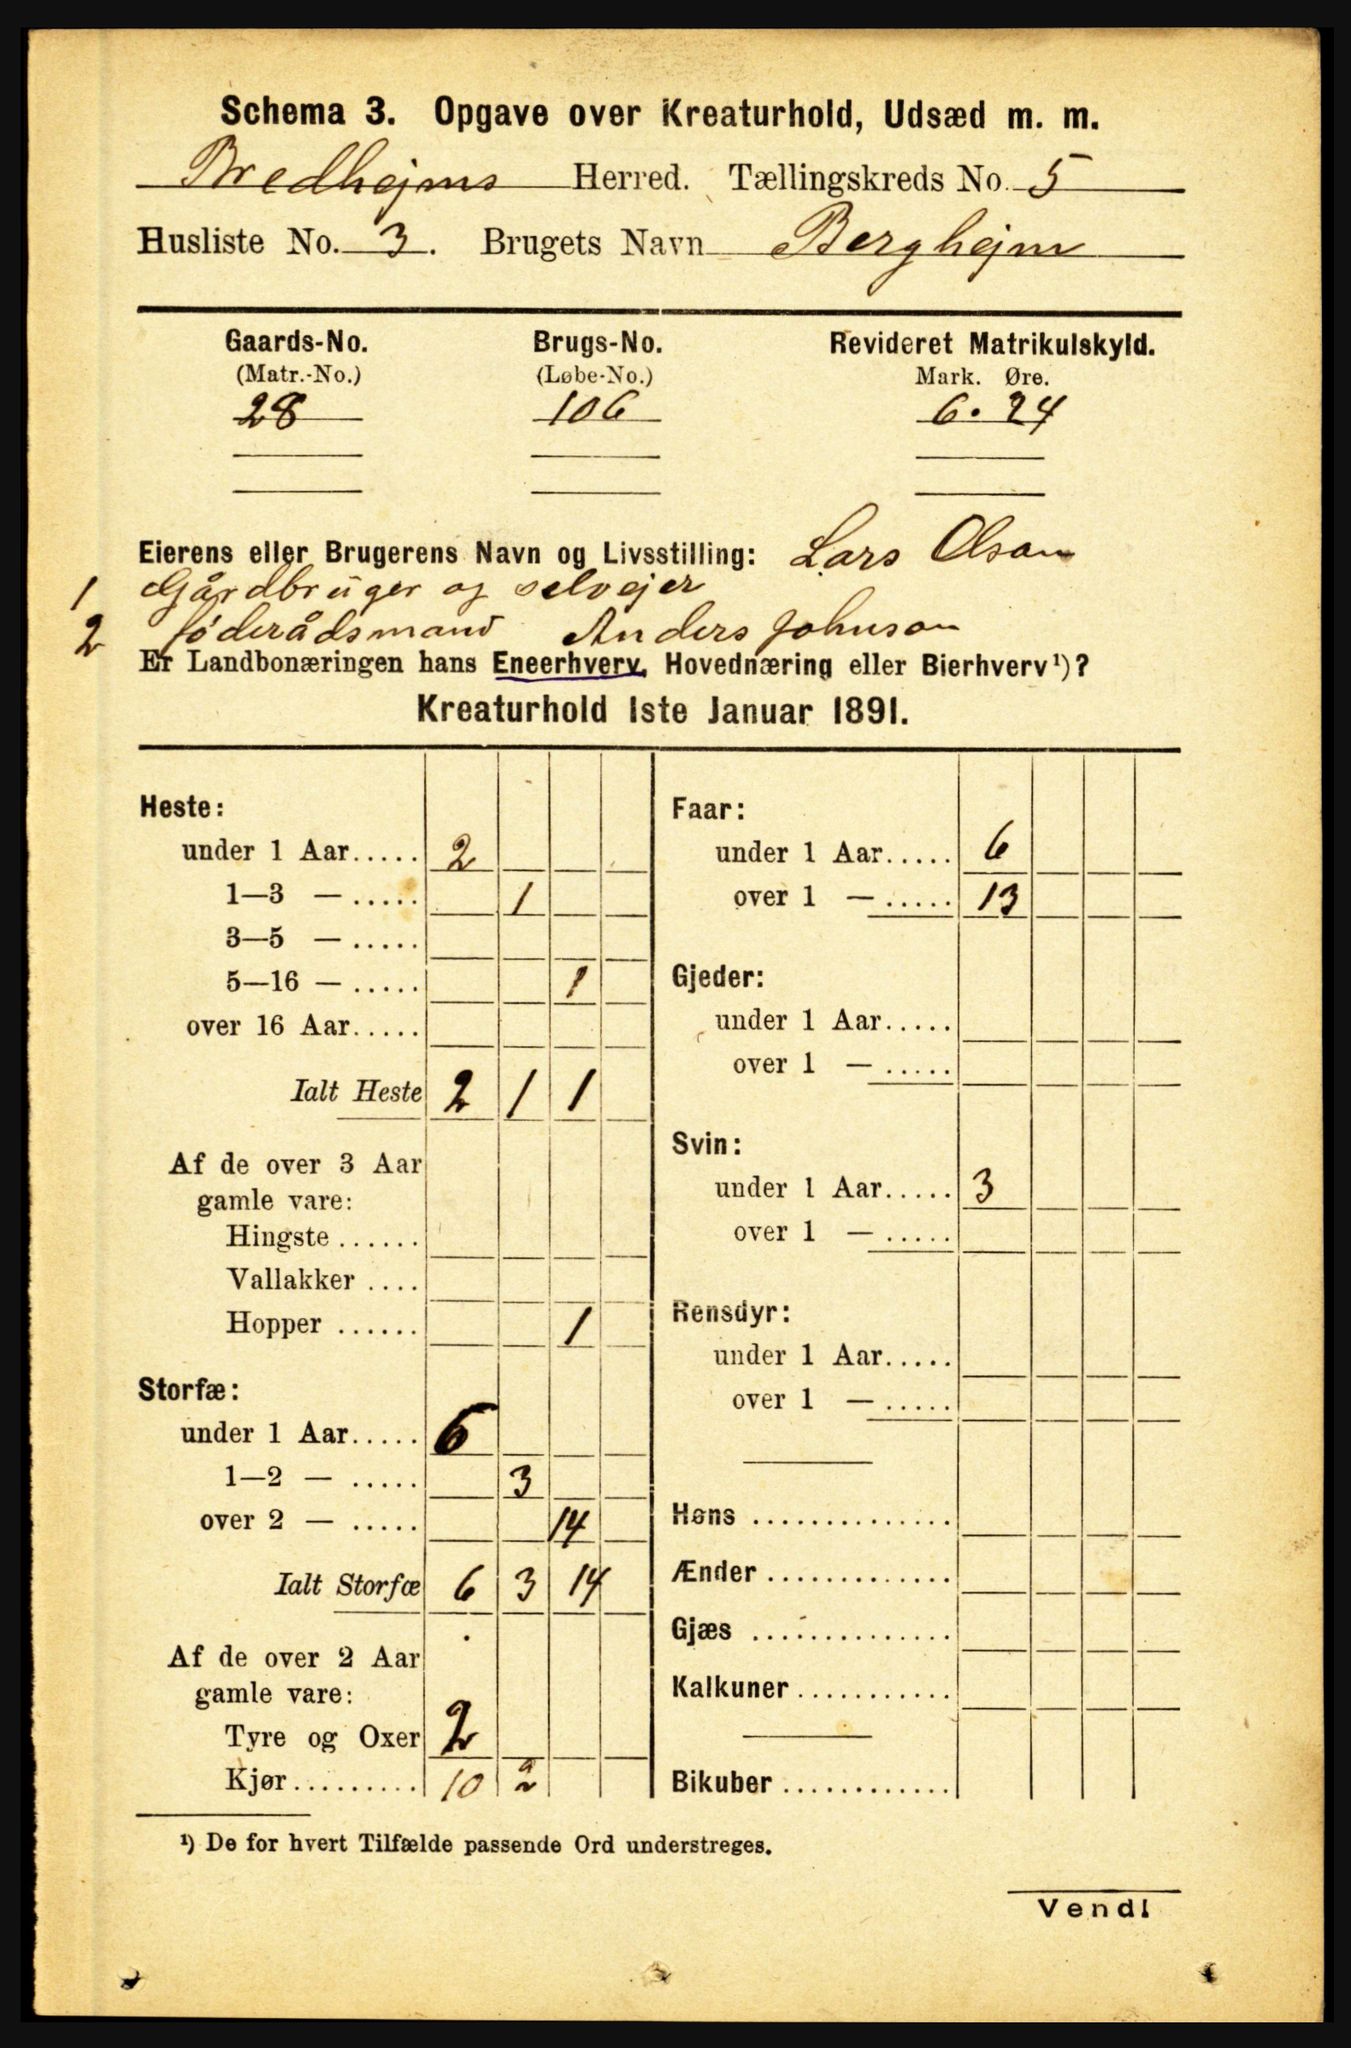 Schema 3. Opgave over Kreaturhold, Udsæd m. m.
Bredhejms Herred. Tællingskreds No. 5
Husliste No. 3. Brugets Navn Berghejm
Gaards-No. Brugs-No. Revideret Matrikulskyld.
(Matr.-No.) (Løbe-No.) Mark. Øre.
28 106 6. 24
Eierens eller Brugerens Navn og Livsstilling: Lars Olson
1 Gårdbruger og selvejer
2 föderådsmand Anders Johnson
Er Landbonæringen hans Eneerhverv, Hovednæring eller Bierhverv¹)?
Kreaturhold 1ste Januar 1891.
Heste:
under 1 Aar..... 2
1—3 — ..... 1
3—5 — .....
5—16 — ..... 1
over 16 Aar.....
Ialt Heste 2 1 1
Af de over 3 Aar
gamle vare:
Hingste ......
Vallakker ....
Hopper ...... 1
Storfæ:
under 1 Aar..... 6
1—2 — ..... 3
over 2 — ..... 14
Ialt Storfæ 6 3 14
Af de over 2 Aar
gamle vare:
Tyre og Oxer 2
Kjør......... 10 2
Faar:
under 1 Aar..... 6
over 1 — ..... 13
Gjeder:
under 1 Aar.....
over 1 — .....
Svin:
under 1 Aar..... 3
over 1 — .....
Rensdyr:
under 1 Aar.....
over 1 — .....
Høns ..............
Ænder .............
Gjæs ..............
Kalkuner...........
Bikuber ............
¹) De for hvert Tilfælde passende Ord understreges.
Vend!